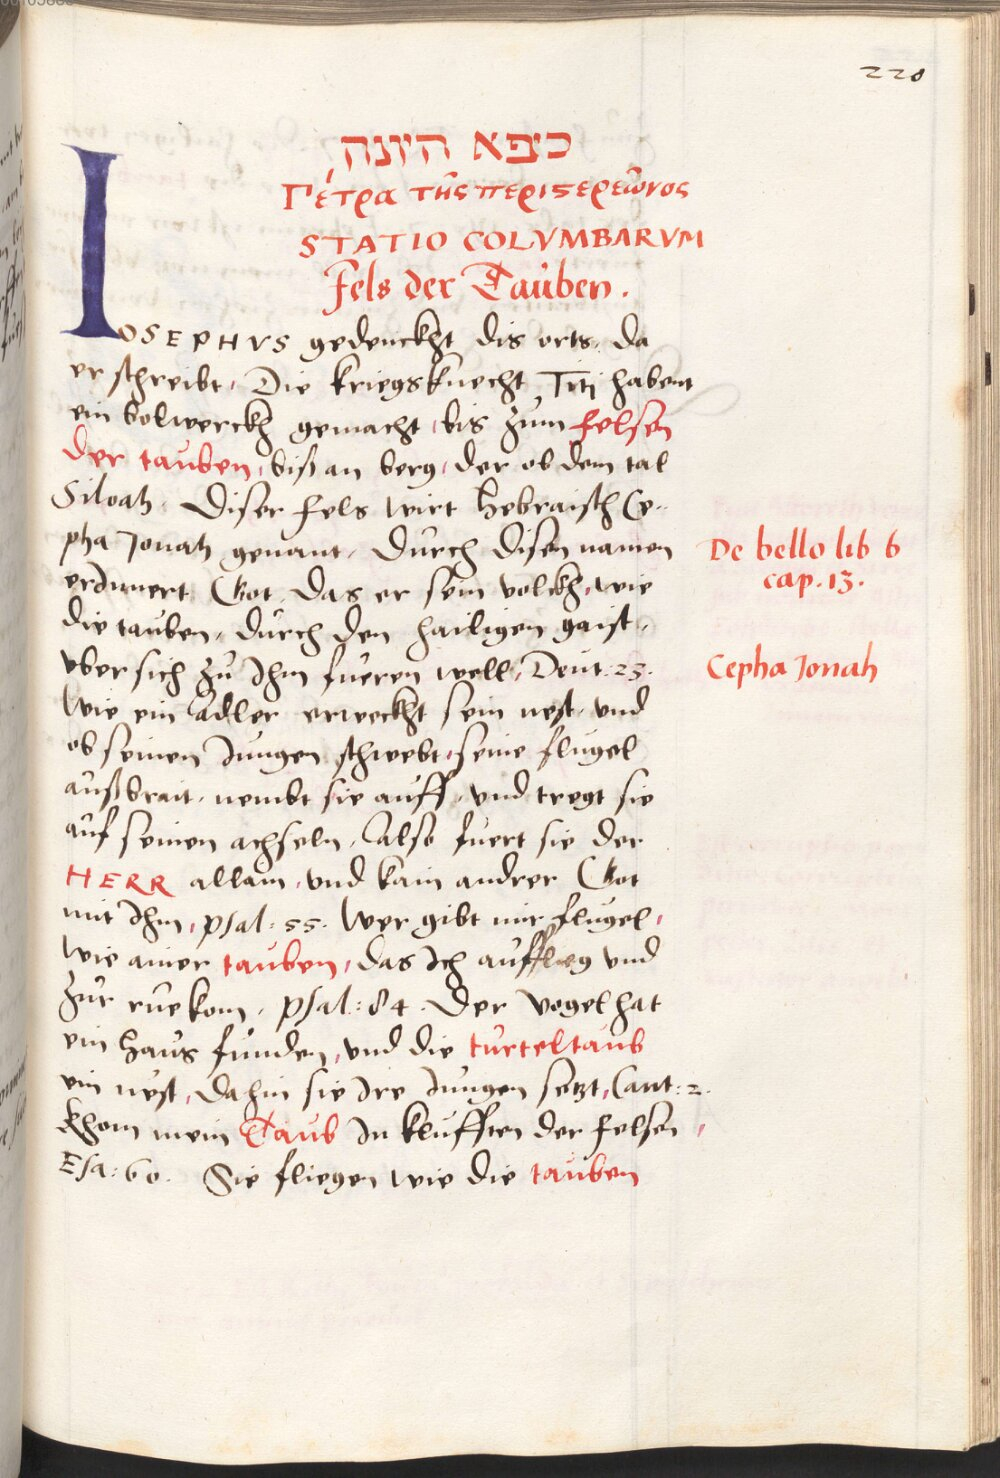 220
כיפא היונה
Πέτρα τῆς περιστερεῶνος
STATIO COLVMBARVM
Fels der Tauben.
IOSEPHVS gedenckht dis orts, da
er schreibt, Die kriegsknecht Titj habent
ein bolwerckh gemacht, bis zum felsen
der tauben, biß an berg, der ob dem tal
Siloah. Diser fels wirt Hebraisch Ce-
pha Jonah genant, durch disen namen
De bello lib 6
cap. 13.
erinnert Got, das er sein volckh, wie
die tauben, durch den hailigen gaist,
vber sich zu Ihm fueren well, Deut. 23.
Cepha Jonah
Wie ein Adler erweckht sein nest, vnd
ob seinen Jungen schwebt, seine flugel
außbrait, nembt sie auff, vnd tregt sie
auf seinen achseln, Also fuert sie der
HERR allain, vnd kain andrer Got
mit Ihm, psal: 55. Wer gibt mir flugel,
wie ainer tauben, das Ich auffflieg vnd
zur rue kom, psal: 84. Der vogel hat
ein haus funden, vnd die turteltaub
ein nest, dahin sie Ire Jungen setzt, Cant: 2.
khom mein Taub In klufften der felsen,
Esa: 60. Sie fliegen wie die tauben